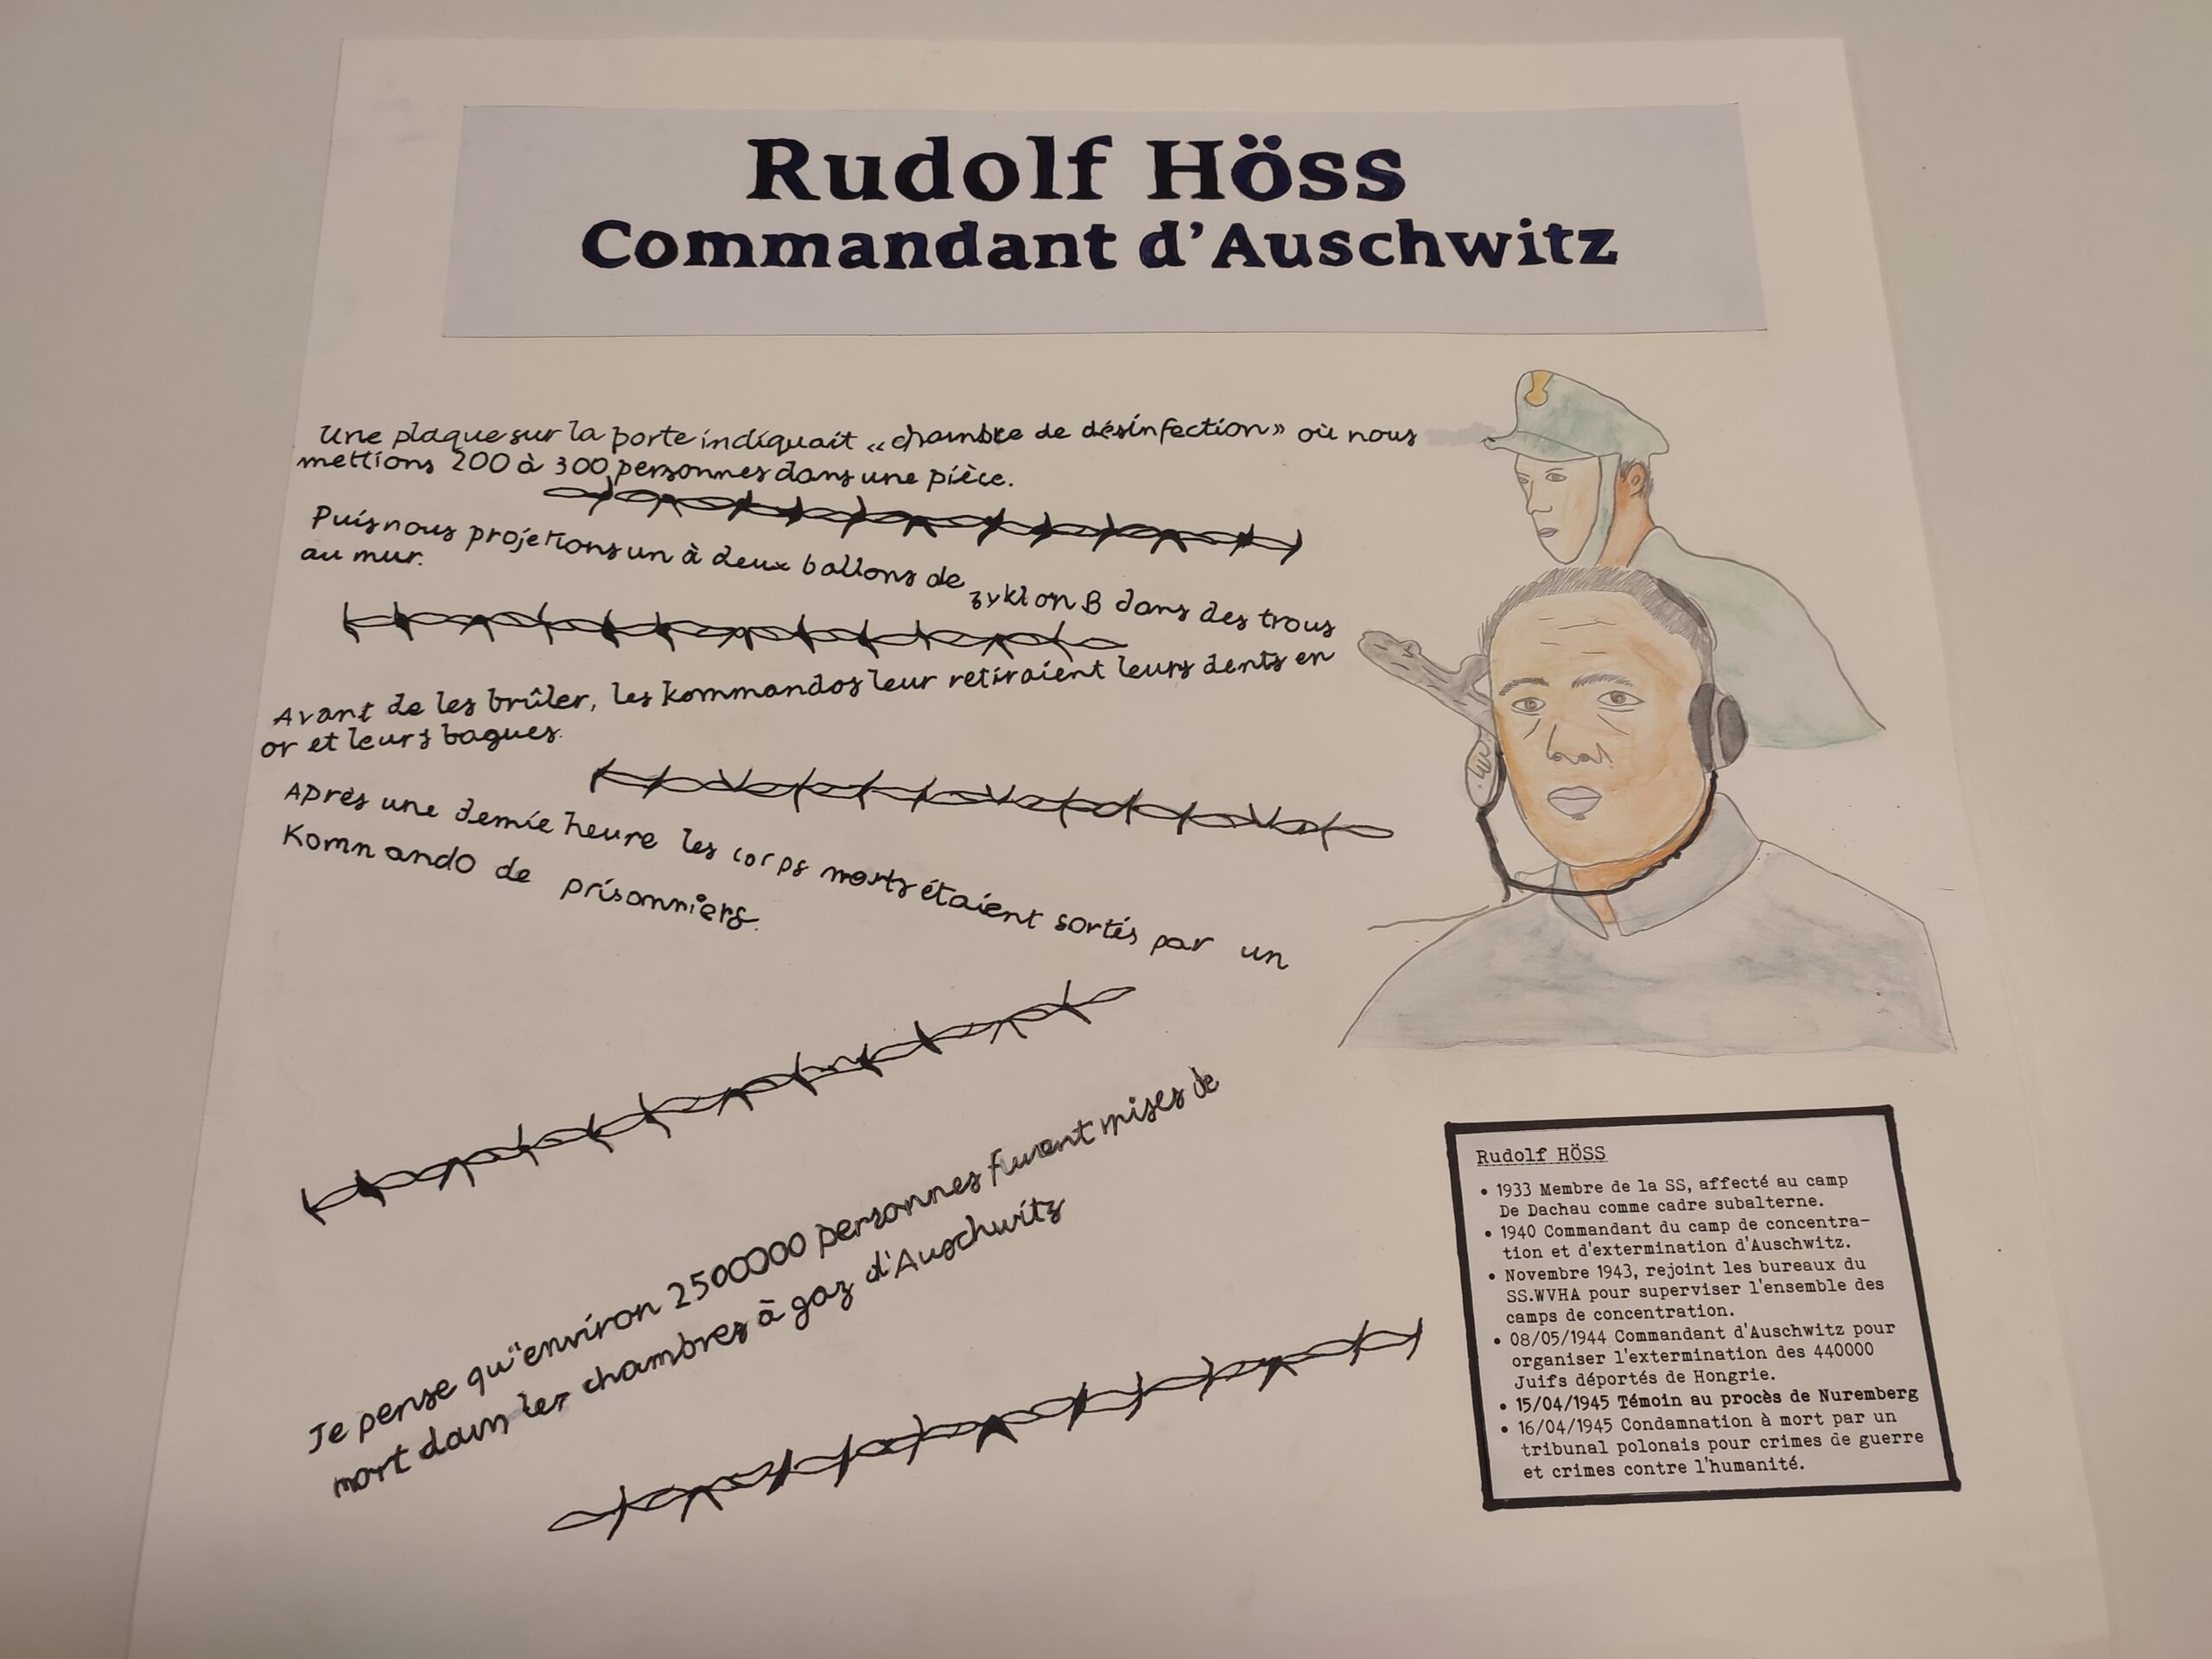 Rudolf Höss
Commandant d'Auschwitz
Une plaque sur la porte indiquait «chambre de désinfection» où nous
mettions 200 à 300 personnes dans une pièce.
Puis nous projetions un à deux ballons de zyklon B dans des trous
au mur.
Avant de les brûler, les kommandos leur retiraient leurs dents en
or et leurs bagues.
Après une demie heure les corps morts étaient sortés par un
Komnando de prisonniers.
Je pense qu'environ 2500000 personnes furent mises de
mort dans les chambres à gaz d'Auschwitz
Rudolf HÖSS
• 1933 Membre de la SS, affecté au camp
De Dachau comme cadre subalterne.
• 1940 Commandant du camp de concentra-
tion et d'extermination d'Auschwitz.
• Novembre 1943, rejoint les bureaux du
SS.WVHA pour superviser l'ensemble des
camps de concentration.
• 08/05/1944 Commandant d'Auschwitz pour
organiser l'extermination des 440000
Juifs déportés de Hongrie.
• 15/04/1945 Témoin au procès de Nuremberg
• 16/04/1945 Condamnation à mort par un
tribunal polonais pour crimes de guerre
et crimes contre l'humanité.